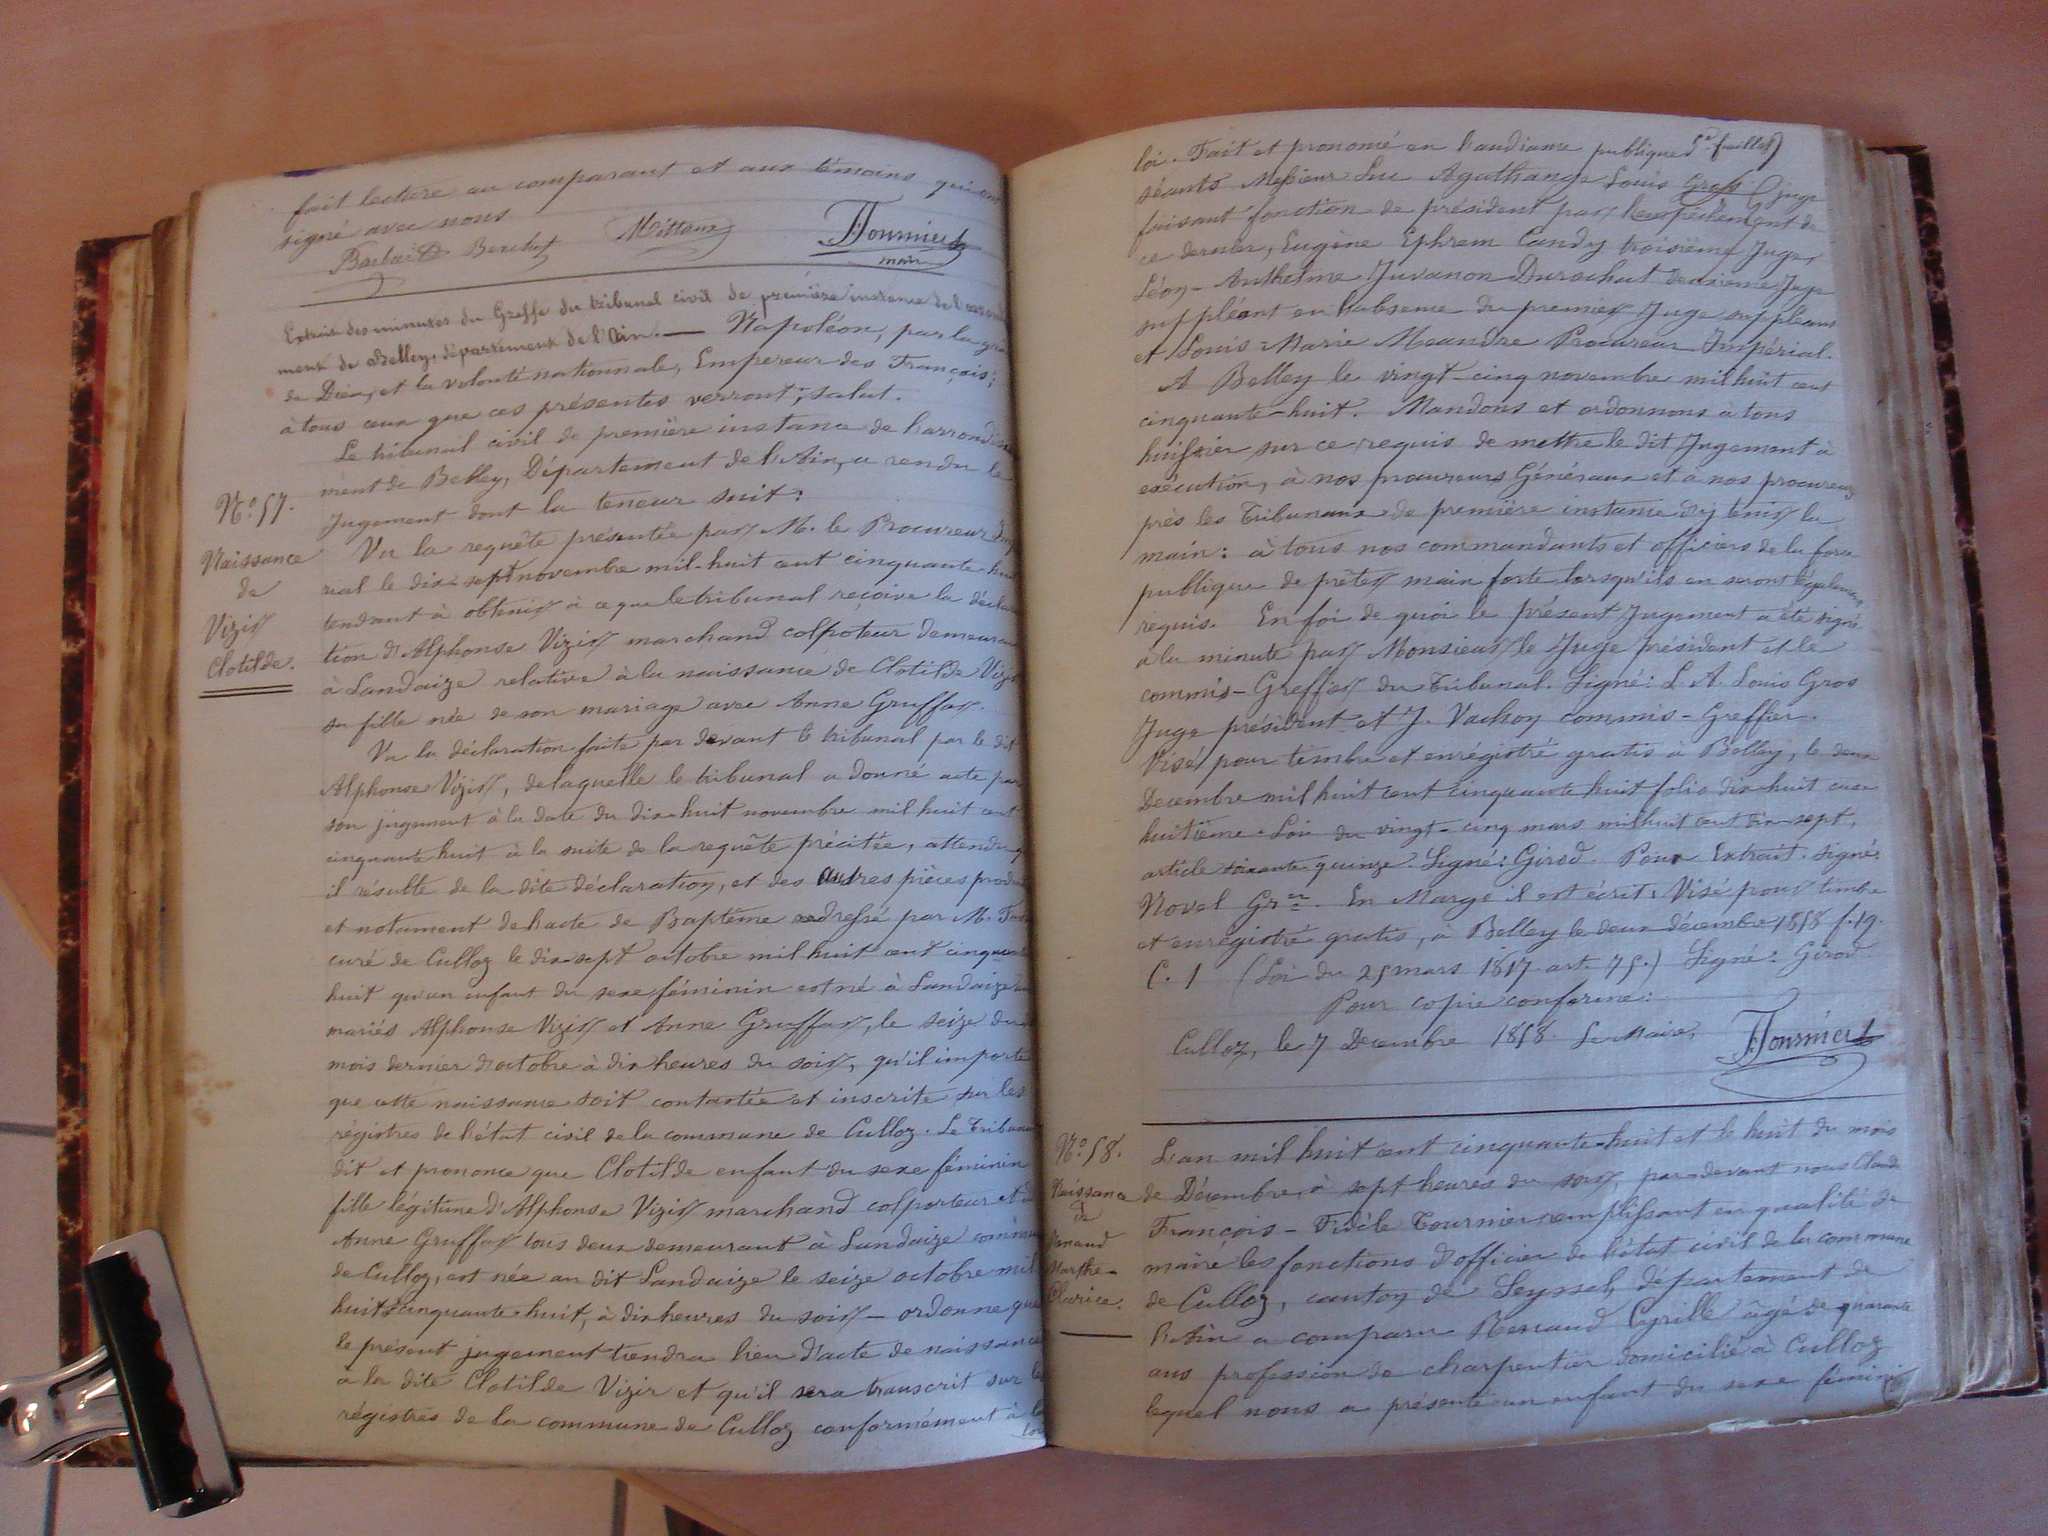 fait lecture au comparant et aux témoins qui ont
signé avec nous
Berchet
Tournier
maire
Extrait des minutes du Greffe du tribunal civil de première instance de l'arrondisse
ment de Belley, département de l'Ain. — Napoléon, par la grâ
de Dieu, et la volonté nationnale, Empereur des François;
à tous ceux que ces présentes verront, salut.
Le tribunal civil de première instance de l'arrondisse
ment de Belley, Département de l'Ain, a rendu le
Jugement dont la teneur suit:
N.o 57.
Naissance
de
Vizir
Clotilde.
Vu la requête présentée par M. le Procureur Impé
rial le dix-sept novembre mil-huit cent cinquante huit
tendant à obtenir à ce que le tribunal reçoive la déclara
tion d'Alphonse Vizir marchand colpoteur demeurant
à Landaize relative à la naissance de Clotilde Vizir
sa fille née de son mariage avec Anne Gruffaz.
Vu la déclaration faite par devant le tribunal par le dit
Alphonse Vizir, de laquelle le tribunal a donné acte par
son jugement à la date du dix-huit novembre mil huit cent
cinquante huit à la suite de la requête précitée, attendu q
il résulte de la dite déclaration, et des autres pièces produi
et notament de l'acte de Baptême adressé par M.
curé de Culloz le dix-sept octobre mil huit cent cinquante
huit qu'un enfant du sexe féminin est né à Landaize
mariés Alphonse Vizir et Anne Gruffaz, le seize du
mois dernier d'octobre à dix heures du soir, qu'il importe
que cette naissance soit contastée et inscrite sur les
régistres de l'état civil de la commune de Culloz. Le Tribunal
dit et prononce que Clotilde enfant du sexe féminin
fille légitime d'Alphonse Vizir marchand colporteur et d
Anne Gruffaz tous deux demeurant à Landaize commune
de Culloz, est née au dit Landaize le seize octobre mil
huit cinquante-huit, à dix heures du soir — ordonne que
le présent jugement tiendra lieu d'acte de naissance
à la dite Clotilde Vizir et qu'il sera transcrit sur les
régistres de la commune de Culloz conformément à la
loi
loi. Fait et prononcé en l'audiance publique feuillet)
séants Messieur Luc Agathange Louis Gros juge
faisant fonction de président par l'empêchement de
ce dernier, Eugène Ephrem Candy troisième Juge,
Léon-Anthelme Juvanon Durochat deuxième Juge
suppléant en l'absence du premier Juge suppléant
et Louis-Marie Meandre Procureur Impérial.
A Belley le vingt-cinq novembre mil huit cent
cinquante-huit. Mandons et ordonnons à tous
huissier sur ce requis de mettre le dit Jugement à
exécution, à nos procureurs Généraux et à nos procureurs
près les Tribunaux de première instance d'y tenir la
main: à tous nos commandants et officiers de la force
publique de prêter main forte lorsqu'ils en seront légalement
réquis. En foi de quoi le présent Jugement a été signé
à la minute par Monsieur le Juge président et le
commis-Greffier du Tribunal. Signé: L. A. Louis Gros
Juge président et J. Vachoy commis-Greffier.
Visé pour timbre et enrégistré gratis à Belley, le deux
Decembre mil huit cent cinquante huit folio dix-huit case
huitième. Loi du vingt-cinq mars mil huit cent dix-sept,
article soixante quinze. Signé: Girod. Pour Extrait. signé:
Novel Gr.er. En Marge il est écrit: Visé pour timbre
et enrégistré gratis, à Belley le deux décembre 1858 f. 19.
C. 1 (Loi du 25 mars 1817 art. 75.) Signé: Girod.
Pour copie conforme:
Culloz, le 7 Decembre 1858. Le Maire,
Tournier
N.o 58.
Naissance
de
Renaud
Marthe-
Clarice.
L'an mil huit cent cinquante-huit et le huit du mois
de Décembre, à sept heures du soir, par-devant nous Claude
François-Fidèle Tournier remplissant en qualité de
maire les fonctions d'officier de l'état civil de la commune
de Culloz, canton de Seyssel, département de
l'Ain a comparu Renaud Cyrille âgé de quarante
ans profession de charpentier domicilié à Culloz
lequel nous a présenté un enfant du sexe féminin